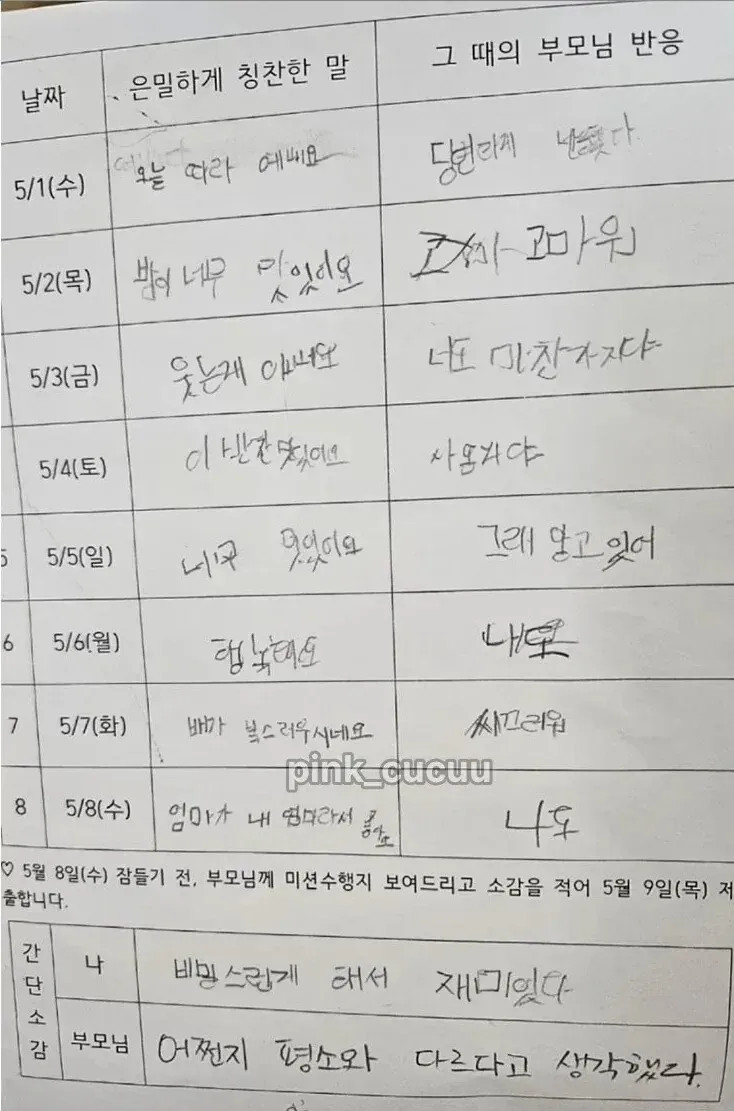 날짜 은밀하게 칭찬한 말 그 때의 부모님 반응
5/1(수) 오늘 따라 에뻐요 당번하게
5/2(목) 밥이 너무 맛있이요 고마워
5/3(금) 웃는개 이뻐요 너도 마찬가지야
5/4(토) 이 반찬 맛있어요 사온거야
5 5/5(일) 너무 멋있이요 그래 알고 있어
6 5/6(월) 행복해요 나도
7 5/7(화) 배가 복스러우시네요 씨끄러워
pink_cucuu
8 5/8(수) 엄마가 내 엄마라서 좋아요 나도
♡ 5월 8일(수) 잠들기 전, 부모님께 미션수행지 보여드리고 소감을 적어 5월 9일(목) 제
출합니다.
간단소감
나 비밀스럽게 해서 재미있다
부모님 어쩐지 평소와 다르다고 생각했다.